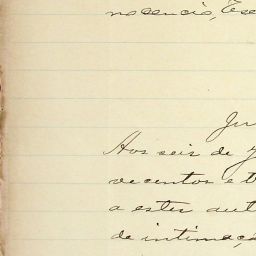 nocencio, Ese
Ju
Aos seis de J
vecentos e t
a estes aut
de intimaçã